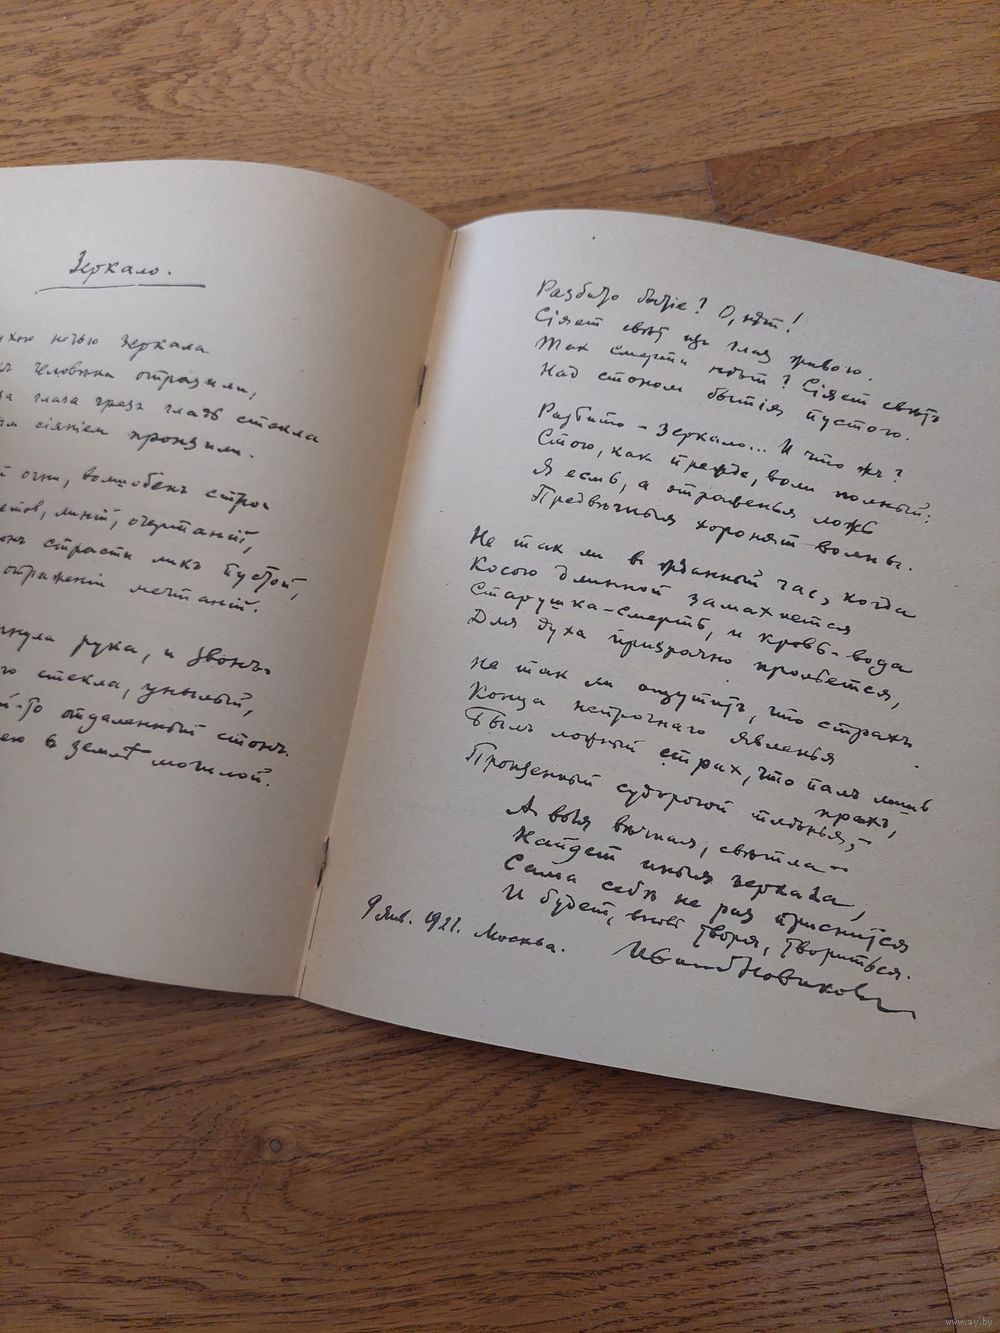 Зеркало.
ухою ночью зеркала
человѣка отразили,
за глаза чрезъ гладь стекла
сіяніем пронзили.
огни, волшебенъ строй
линій, очертаній,
страсти ликъ пустой,
отраженій мечтаній.
рука, и звонъ
стекла, унылый,
й-то отдаленный стонъ
ею в землѣ могилой.
Разбито бытіе? О, нѣт!
Сіяет свѣт
Так смерти нѣт? Сіяет свѣтъ
Над стоном бытія пустого.
Разбито – зеркало... И что жъ?
Стою, как прежде, воли полный:
Я есмь, а отраженья ложь
Предвѣчныя хоронят волны.
Не так ли в жданный час, когда
Косою длинной замахнется
Старушка-смерть, и кровь-вода
Для духа призрачно прольется,
Не так ли ощутить, что страхъ
Конца непрочнаго явленья
Былъ ложный страх, что палъ лишь
прахъ,
Пронзенный судорогой тлѣнья,–
А воля вѣчная, свѣтла –
Найдет иныя зеркала,
Сама себѣ не раз приснится
И будет, вновь творя, твориться.
9 янв. 1921. Москва.
Иван Новиковъ
www.ay.by